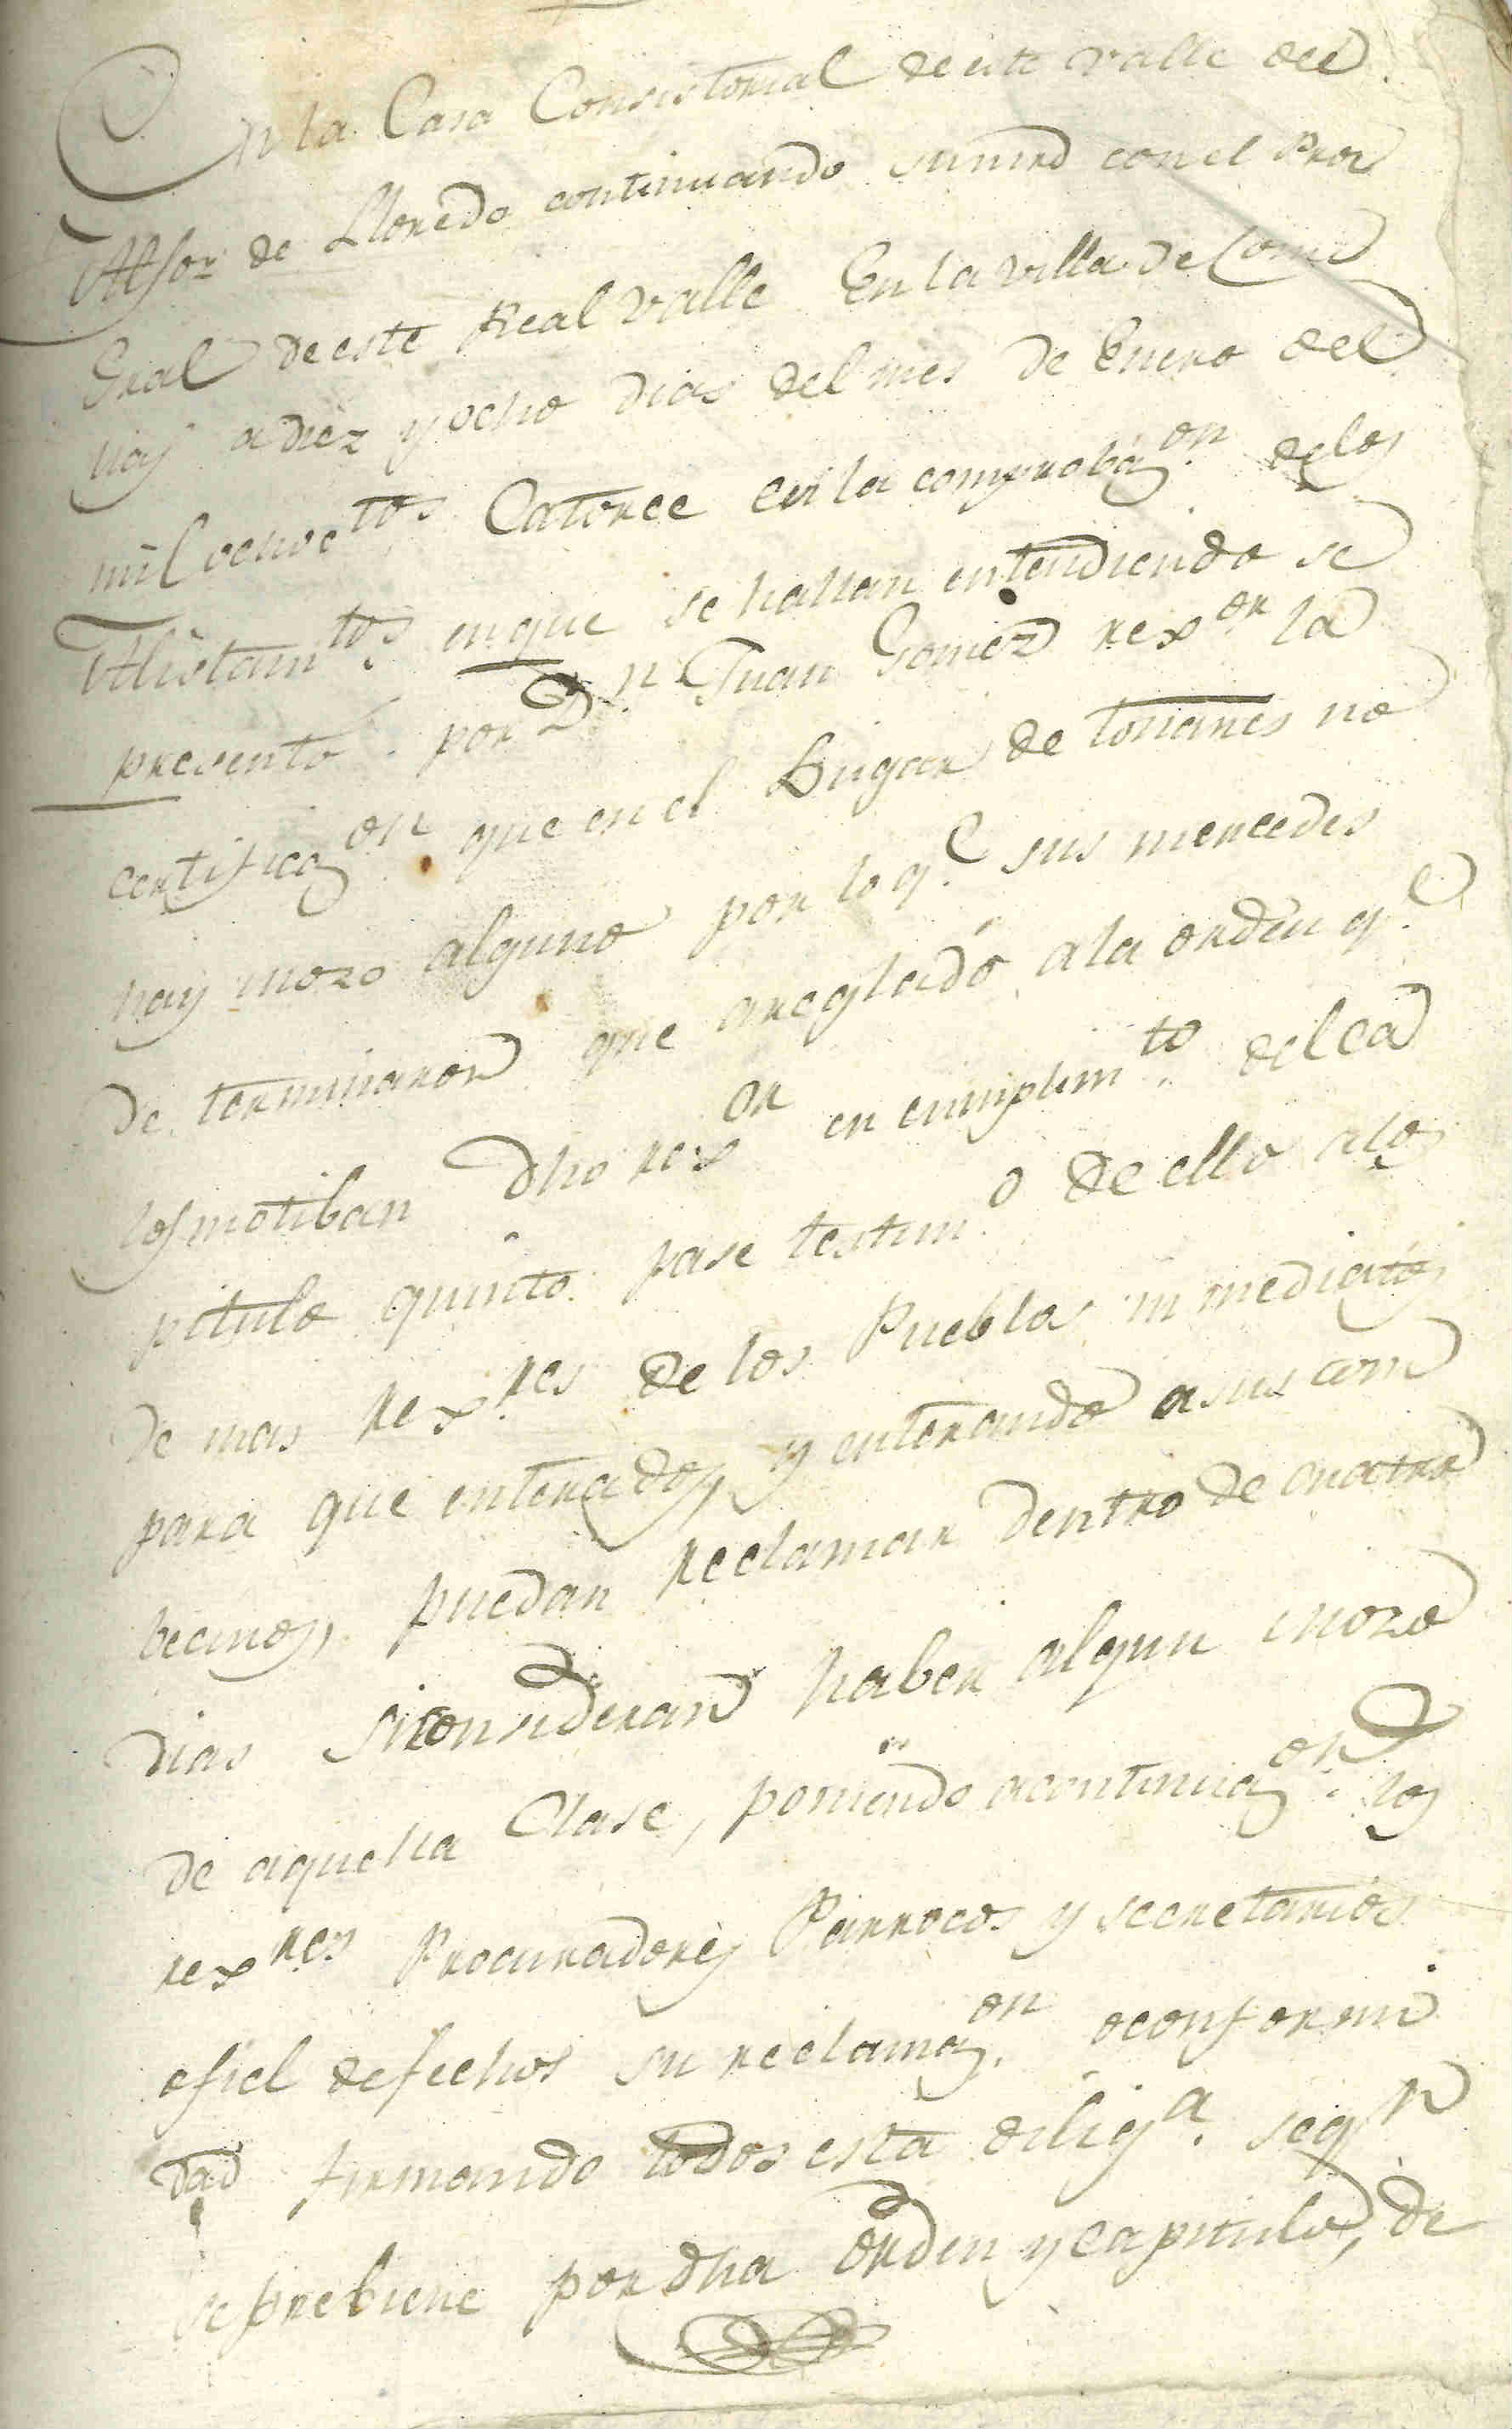 En la Casa Consistorial de este valle de
Alfoz de Lloredo continuando su mrd con el Pror
Gral de este Real valle En la villa de Comi
has a diez y ocho dias del mes de Enero del
mil ochoctos. Catorce en la comprobazon. de los
Alistamtos. en que se hallan entendiendo se
presento. por Dn. Juan Gomez rexor la
certificazon que en el Lugar de toñanes no
hay mozo alguno por lo q.e sus mercedes
de terminaron que areglado a la orden q.e
los motiban dho rexor en cumplimto. del ca
pitulo quinto pase testimo. de ello a los
de mas rexres de los Pueblos inmediatos
para que enterados, y enterando a sus con
becinos, puedan reclamar dentro de cuatro
dias si consideran haber algun mozo
de aquella Clase, poniendo a continuazon. los
rexres Procuradores Parrocos y secretarios
o fiel de fechos su reclamazon. o conformi
dad firmando todos esta diliga. segn
se prebiene por dha orden y capitulo, de